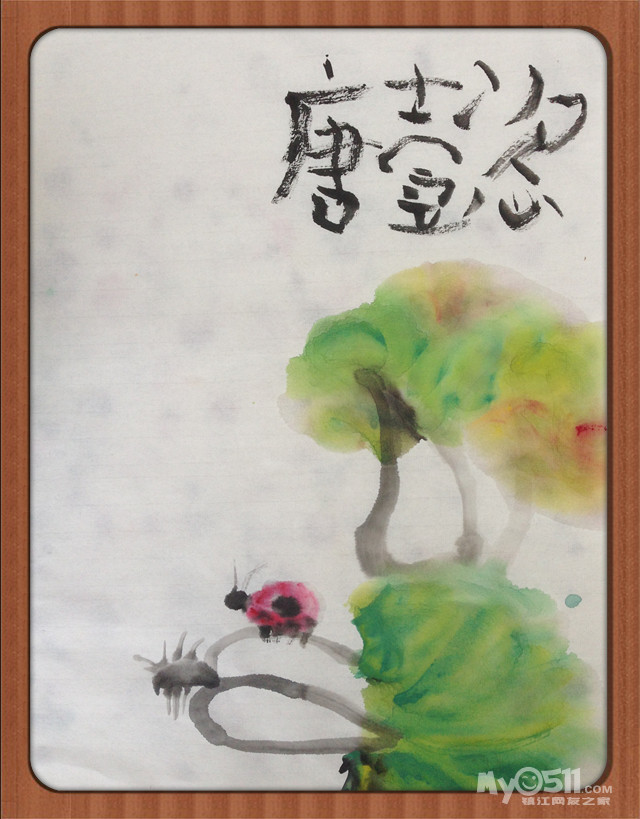 唐壹
My0511.COM
镇江网友之家